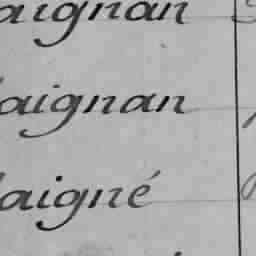 aignan
aignan
aigné